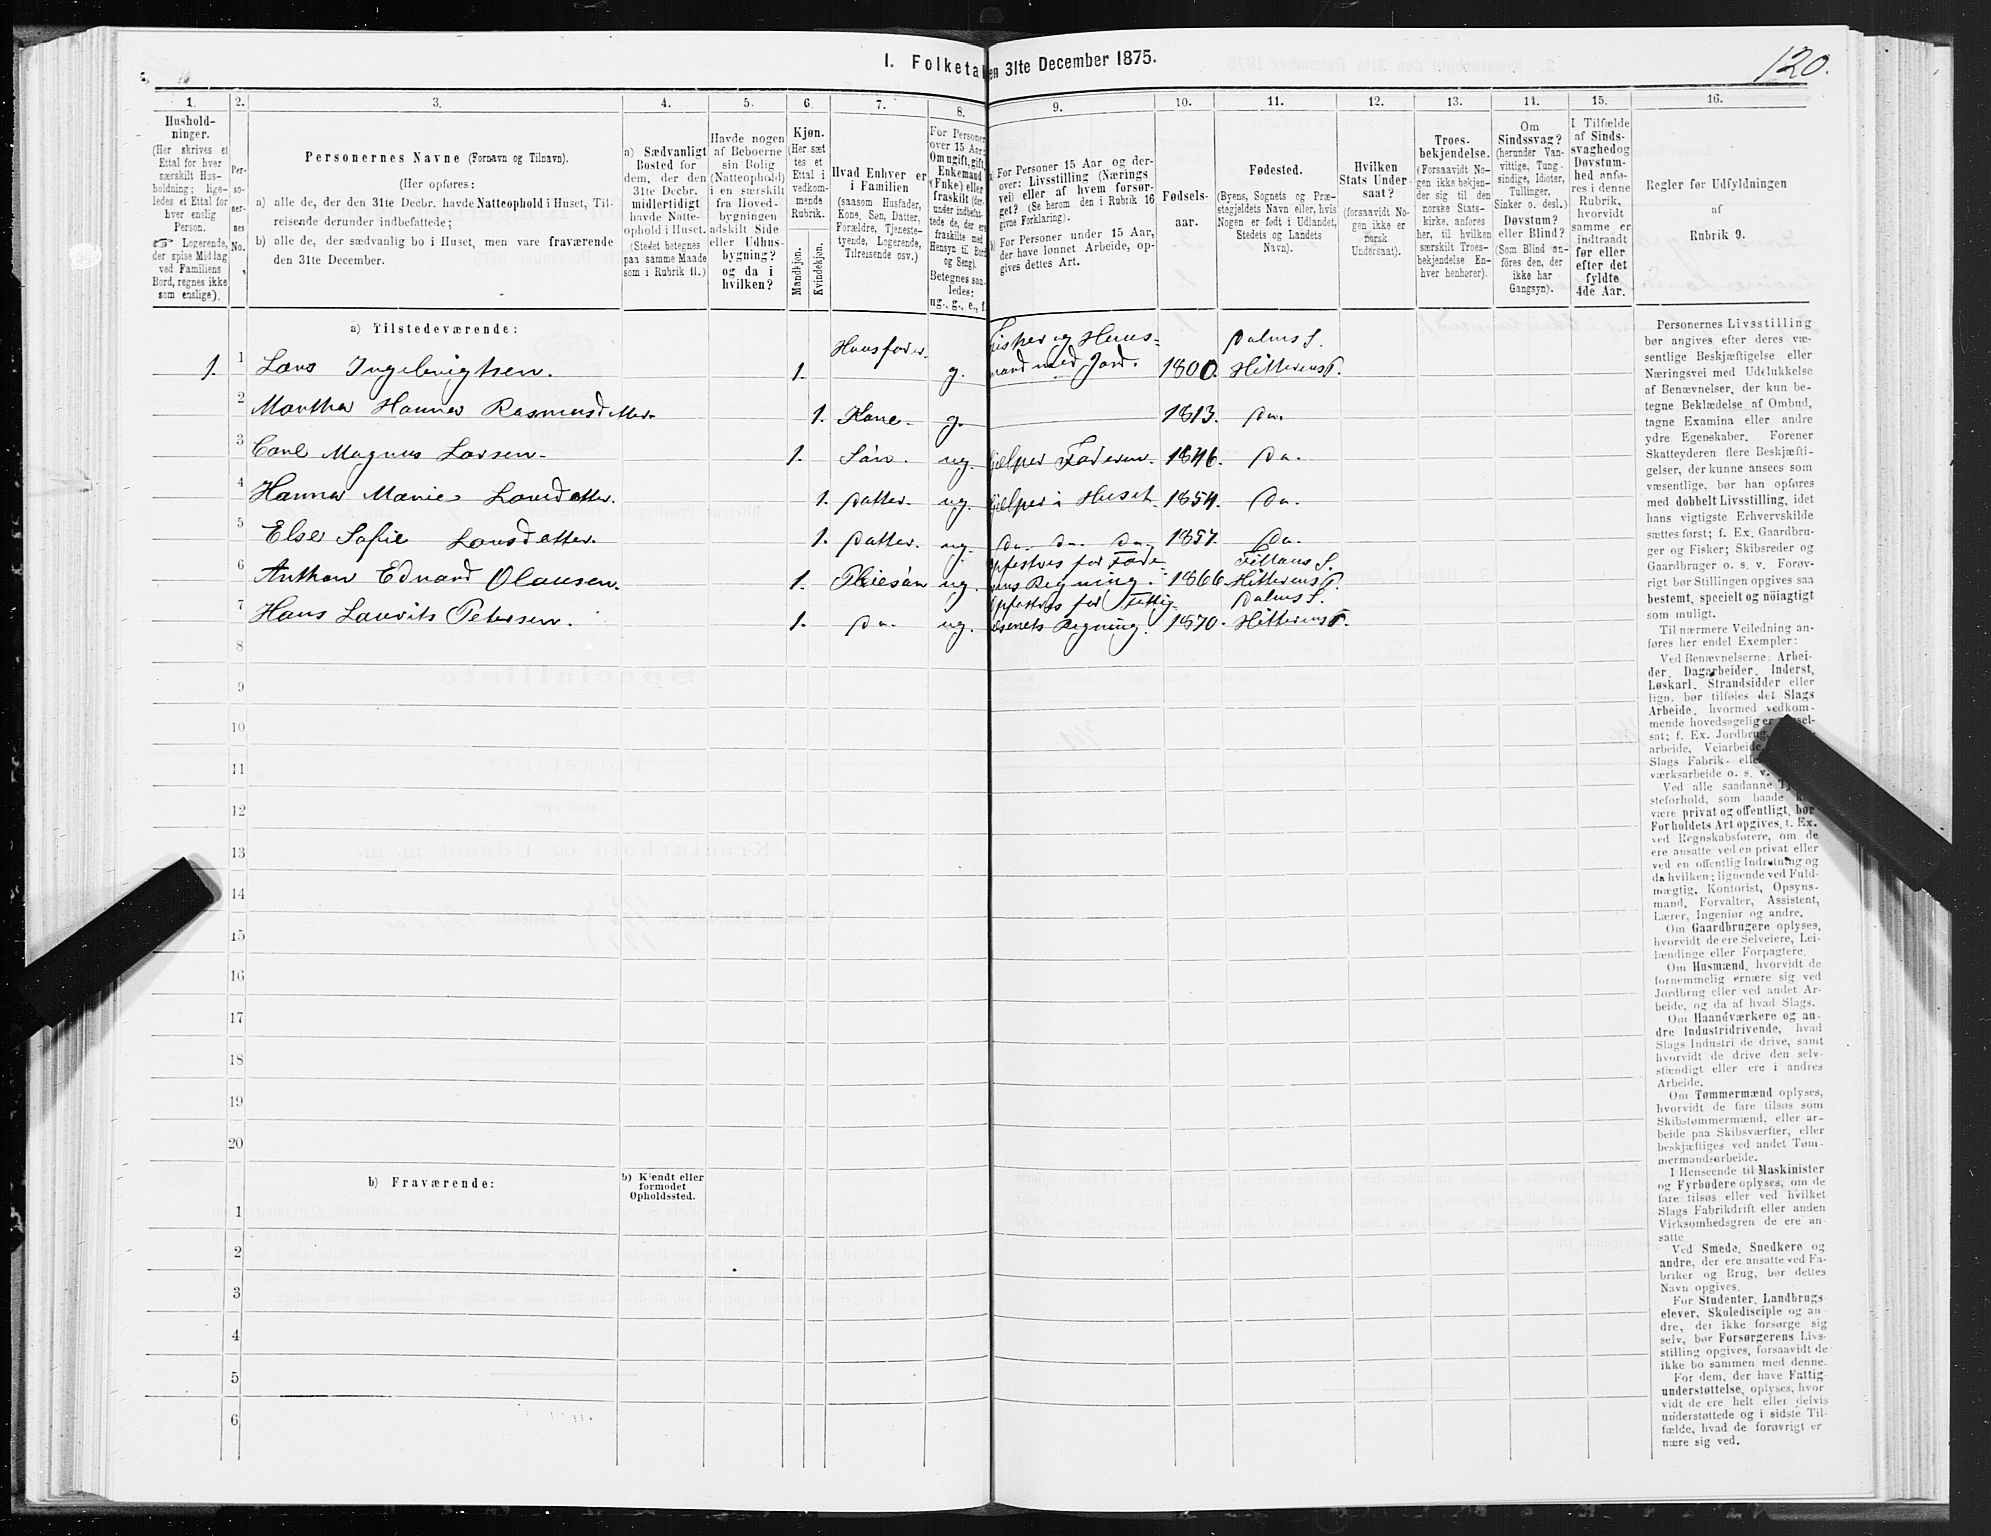 120.
I. Folketal den 31te December 1875.
1. 2. 3. 4. 5. 6. 7. 8. 9. 10. 11. 12. 13. 14. 15. 16.
Hushold-
ninger.
(Her skrives et
Ettal for hver
særskilt Hus-
holdning; lige-
ledes et Ettal for
hver enslig
Person.
☞ Logerende,
der spise Middag
ved Familiens
Bord, regnes ikke
som enslige).
Per-
so-
ner-
nes
No.
Personernes Navne (Fornavn og Tilnavn).
(Her opføres:
a) alle de, der den 31te Decbr. havde Natteophold i Huset, Til-
reisende derunder indbefattede;
b) alle de, der sædvanlig bo i Huset, men vare fraværende
den 31te December.
a) Sædvanligt
Bosted for
dem, der den
31te Decbr.
midlertidigt
havde Natte-
ophold i Huset.
(Stedet betegnes
paa samme Maade
som i Rubrik 11.)
Havde nogen
af Beboerne
sin Bolig
(Natteophold)
i en særskilt
fra Hoved-
bygningen
adskilt Side
eller Udhus-
bygning?
og da i
hvilken?
Kjøn.
(Her sæt
tes et
Ettal i
vedkom-
mende
Rubrik.
Mandkjøn.
Kvindekjøn.
Hvad Enhver er
i Familien
(saasom Husfader,
Kone, Søn, Datter,
Forældre, Tjeneste-
tyende, Logerende,
Tilreisende osv.)
For Personer
over 15 Aar:
Om ugift, gift,
Enkemand
(Enke) eller
fraskilt (der-
under indbefat-
tede de, der ere
fraskilte med
Hensyn til Bord
og Seng).
Betegnes saa-
ledes:
ug., g., e., f.
a) For Personer 15 Aar og der-
over: Livsstilling (Nærings
vei) eller af hvem forsør-
get? (Se herom den i Rubrik 16
givne Forklaring).
b) For Personer under 15 Aar,
der have lønnet Arbeide, op-
gives dettes Art.
Fødsels-
aar.
Fødested.
(Byens, Sognets og Præ-
stegjeldets Navn eller, hvis
Nogen er født i Udlandet,
Stedets og Landets
Navn).
Hvilken
Stats Under
saat?
(forsaavidt No-
gen ikke er
norsk
Undersaat).
Troes-
bekjendelse.
(Forsaavidt No-
gen ikke bekjen-
der sig til den
norske Stats-
kirke, anføres
her, til hvilken
særskilt Troes-
bekjendelse En-
hver henhører).
Om
Sindssvag?
(herunder Van-
vittige, Tung-
sindige, Idioter,
Tullinger,
Sinker o. desl.)
Døvstum?
eller Blind?
(Som Blind an-
føres den, der
ikke har
Gangsyn).
I Tilfælde
af Sinds-
svaghedog
Døvstum-
hed anfø-
res i denne
Rubrik,
hvorvidt
samme er
indtraadt
før eller
efter det
fyldte
4de Aar.
Regler for Udfyldningen
af
Rubrik 9.
a) Tilstedeværende:
1. 1 Lars Ingebrigtsen. 1. Huusfader. g. Fisker og Huus=
mand med Jord. 1800. Dalms S.
Hitterens P.
2 Martha Hanna Rasmusdatter. 1. Kone. g. 1813. Do.
3 Carl Magnus Larsen. 1. Søn. ug. hjelper Faderen. 1846. Do.
4 Hanna Marie Larsdatter. 1. Datter. ug. hjelper i Huset. 1854. Do.
5 Else Sofie Larsdatter. 1. Datter. ug. Do. Do. Do. 1857. Do.
6 Anthon Edvard Olausen. 1. Pleiesøn ug. opfostres for Fade-
rens Regning. 1866. Fillans S.
Hitterens P.
7 Hans Lauvits Petersen. 1. Do. ug. opfostres for Fattig-
væsenets Regning. 1870. Dalms S.
Hitterens P.
8
9
10
11
12
13
14
15
16
17
18
19
20
b) Fraværende:
b) Kjendt eller
formodet
Opholdssted.
1
2
3
4
5
6
Personernes Livsstilling
bør angives efter deres væ-
sentlige Beskjæftigelse eller
Næringsvei med Udelukkelse
af Benævnelser, der kun be-
tegne Beklædelse af Ombud,
tagne Examina eller andre
ydre Egenskaber. Forener
Skatteyderen flere Beskjæfti-
gelser, der kunne ansees som
væsentlige, bør han opføres
med dobbelt Livsstilling, idet
hans vigtigste Erhvervskilde
sættes først; f. Ex. Gaardbru-
ger og Fisker; Skibsreder og
Gaardbruger o. s. v. Forøv-
rigt bør Stillingen opgives saa
bestemt, specielt og nöiagtigt
som muligt.
Til nærmere Veiledning an-
føres her endel Exempler:
Ved Benævnelserne: Arbei-
der, Dagarbeider, Inderst,
Løskarl, Strandsidder eller
lign. bør tilføies det Slags
Arbeide, hvormed vedkom-
mende hovedsagelig er
sat; f. Ex. Jordbrug,
arbeide, Veiarbeide,
Slags Fabrik- elle
værksarbeide o. s. v.
Ved alle saadanne
steforhold, som baade
være privat og offentligt, bør
Forholdets Art opgives, t. Ex.
ved Regnskabsførere, om de
ere ansatte ved en privat eller
ved en offentlig Indretning og
da hvilken; lignende ved Fuld-
mægtig, Kontorist, Opsyns-
mand, Forvalter, Assistent,
Lærer, Ingeniør og andre.
Om Gaardbrugere oplyses,
hvorvidt de ere Selveiere, Lei-
lændinge eller Forpagtere.
Om Husmænd, hvorvidt de
fornemmelig ernære sig ved
Jordbrug eller ved andet Ar-
beide, og da af hvad Slags.
Om Haandværkere og an-
dre Industridrivende, hvad
Slags Industri de drive, samt
hvorvidt de drive den selv-
stændigt eller ere i andres
Arbeide.
Om Tømmermænd oplyses,
hvorvidt de fare tilsøs som
Skibstømmermænd, eller ar-
beide paa Skibsværfter, eller
beskjæftiges ved andet Tøm-
mermandsarbeide.
I Henseende til Maskinister
og Fyrbødere oplyses, om de
fare tilsøs eller ved hvilket
Slags Fabrikdrift eller anden
Virksomhedsgren de ere an-
satte
Ved Smede, Snedkere og
andre, der ere ansatte ved Fa-
briker og Brug, bør dettes
Navn opgives.
For Studenter, Landbrugs-
elever, Skoledisciple og an-
dre, der ikke forsørge sig
selv, bør Forsørgerens Livs-
stilling opgives, forsaavidt de
ikke bo sammen med denne.
For dem, der have Fattig-
understøttelse, oplyses, hvor
vidt de ere helt eller delvis
understøttede og i sidste Til-
fælde, hvad de forøvrigt er
nære sig ved.